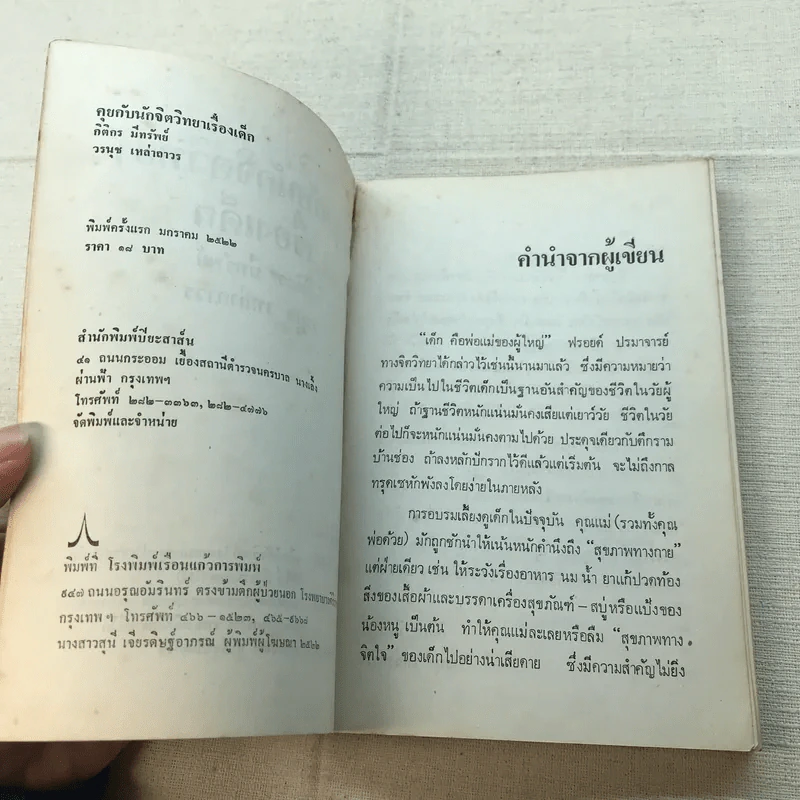 คุยกับนักจิตวิทยาเรื่องเด็ก
กิติกร มีทรัพย์
วรนุช เหล่าถาวร
พิมพ์ครั้งแรก มกราคม ๒๕๒๒
ราคา ๑๘ บาท
สำนักพิมพ์ปิยะสาส์น
๔๑ ถนนกระออม เยื้องสถานีตำรวจนครบาล นางเลิ้ง
ผ่านฟ้า กรุงเทพฯ
โทรศัพท์ ๒๘๒-๓๓๖๓, ๒๘๒-๔๗๗๖
จัดพิมพ์และจำหน่าย
พิมพ์ที่ โรงพิมพ์เรือนแก้วการพิมพ์
๙๔๗ ถนนอรุณอัมรินทร์ ตรงข้ามตึกผู้ป่วยนอก
กรุงเทพฯ โทรศัพท์ ๔๖๖-๑๕๒๓,
นางสาวสุนี เจียรดิษฐ์อาภรณ์ ผู้พิมพ์ผู้โฆษณา ๒๕๒๒
คำนำจากผู้เขียน
"เด็ก คือพ่อแม่ของผู้ใหญ่" ฟรอยด์ ปรมาจารย์
ทางจิตวิทยาได้กล่าวไว้เช่นนี้นานมาแล้ว ซึ่งมีความหมายว่า
ความเป็นไปในชีวิตเด็กเป็นฐานอันสำคัญของชีวิตในวัยผู้
ใหญ่ ถ้าฐานชีวิตหนักแน่นมั่นคงเสียแต่เยาว์วัย ชีวิตในวัย
ต่อไปก็จะหนักแน่นมั่นคงตามไปด้วย ประดุจเดียวกับตึกราม
บ้านช่อง ถ้าลงหลักปักรากไว้ดีแล้วแต่เริ่มต้น จะไม่ถึงกาล
ทรุดเซหักพังลงโดยง่ายในภายหลัง
การอบรมเลี้ยงดูเด็กในปัจจุบัน คุณแม่ (รวมทั้งคุณ
พ่อด้วย) มักถูกชักนำให้เน้นหนักคำนึงถึง "สุขภาพทางกาย"
แต่ฝ่ายเดียว เช่น ให้ระวังเรื่องอาหาร นม น้ำ ยาแก้ปวดท้อง
สิ่งของเสื้อผ้าและบรรดาเครื่องสุขภัณฑ์-สบู่หรือแป้งของ
น้องหนู เป็นต้น ทำให้คุณแม่ละเลยหรือลืม "สุขภาพทาง
จิตใจ" ของเด็กไปอย่างน่าเสียดาย ซึ่งมีความสำคัญไม่ยิ่ง